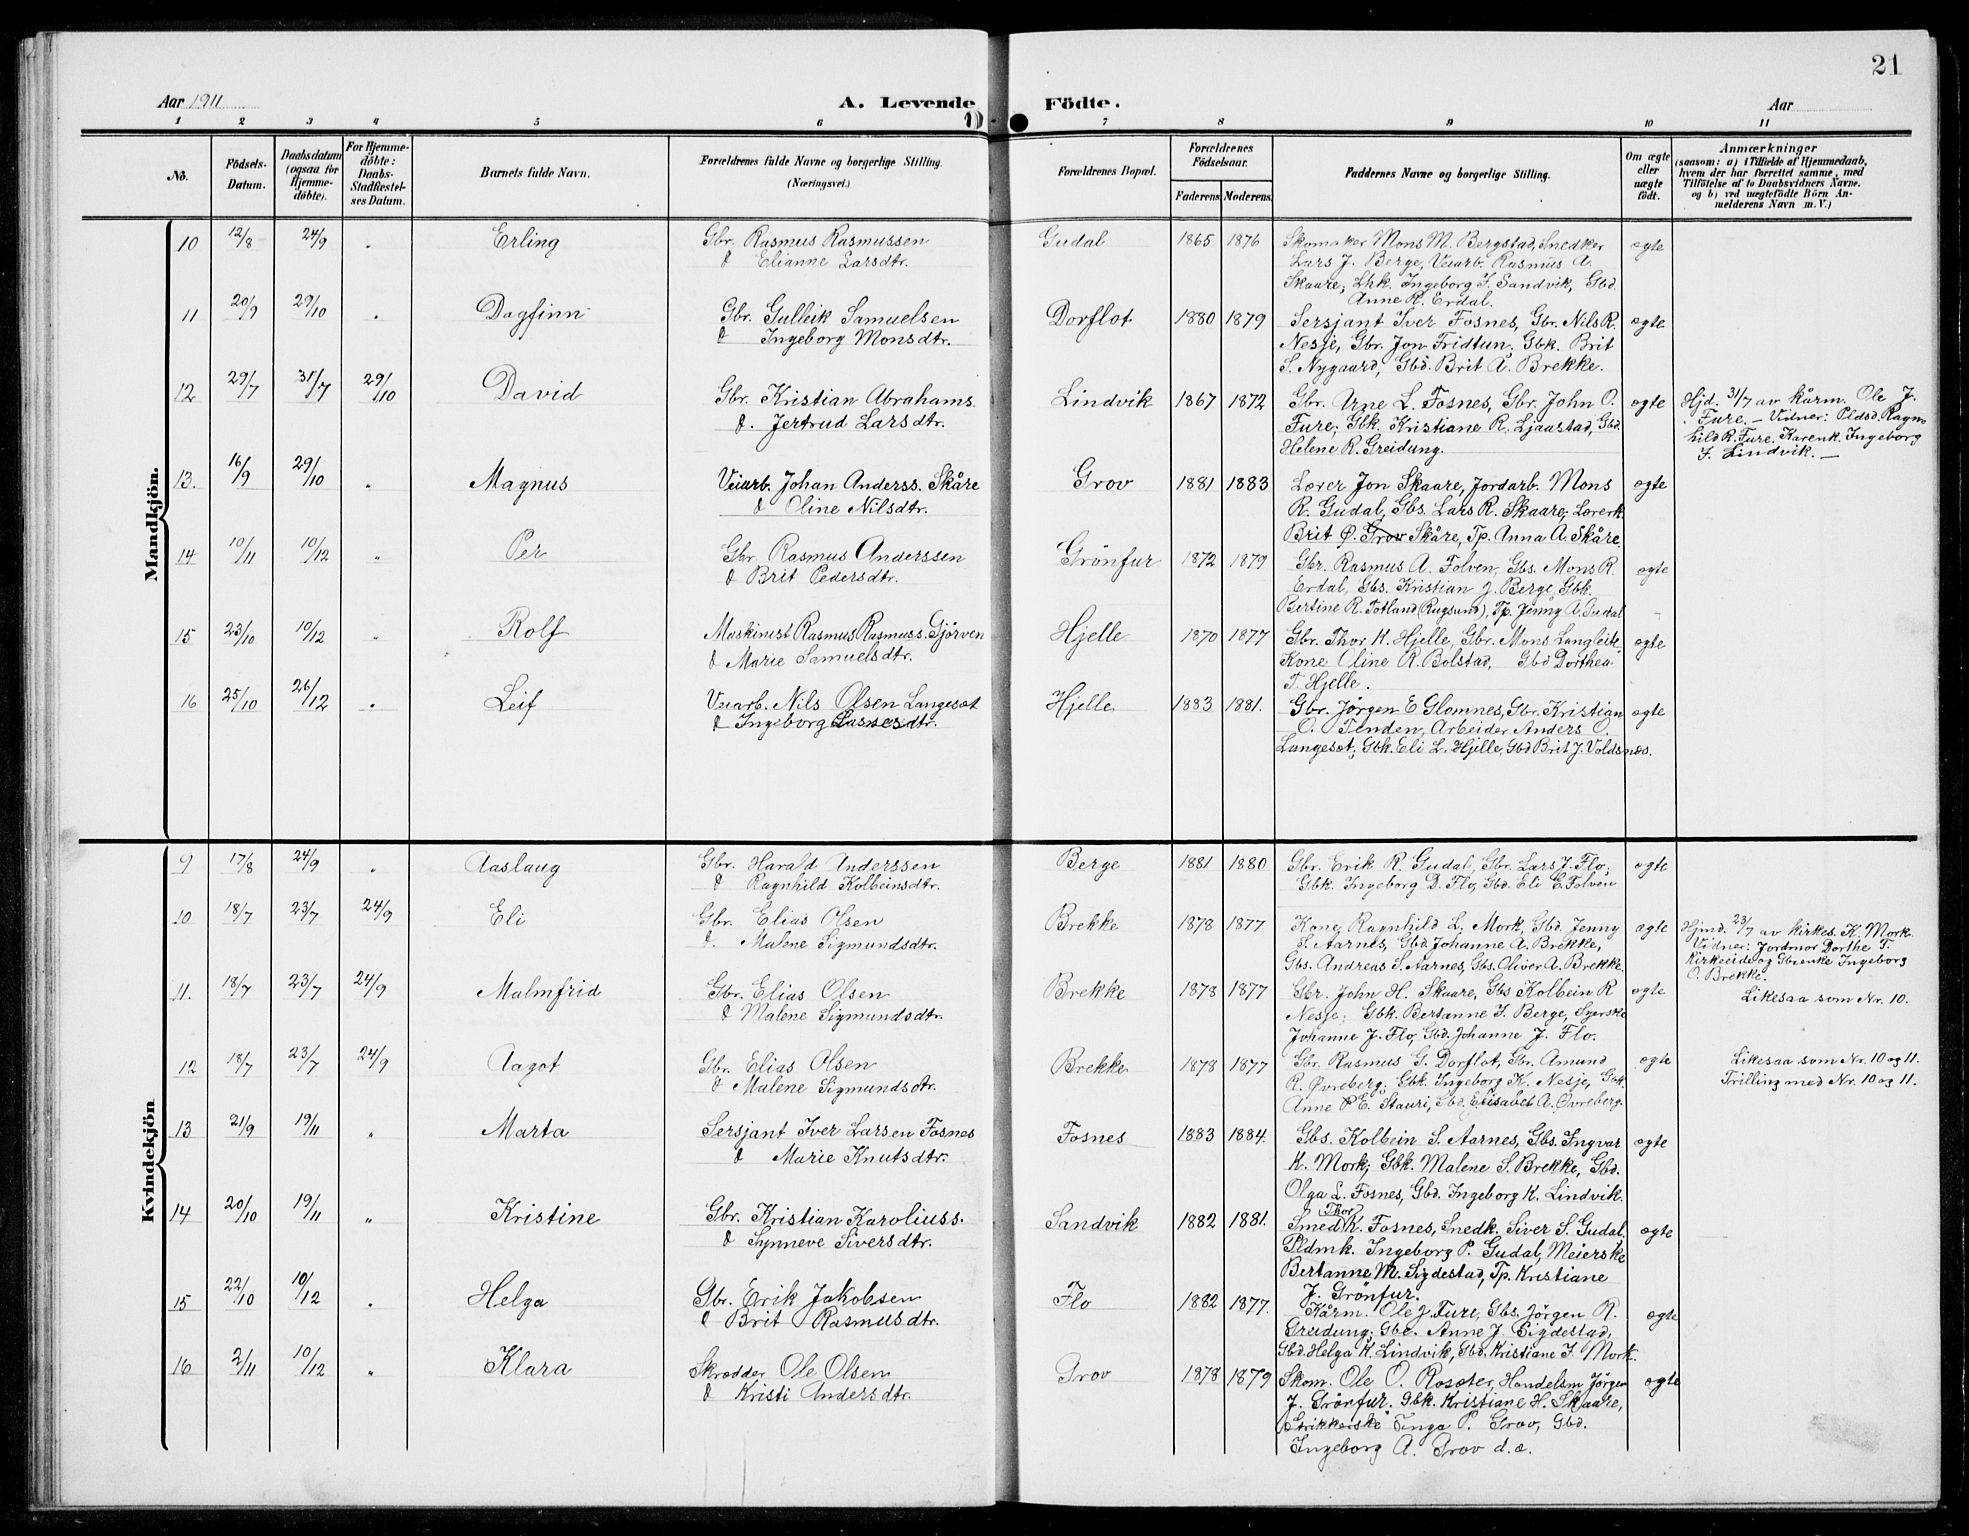 21
Aar 1911
A. Levende Födte.
Aar
1 2 3 4 5 6 7 8 9 10 11
No.
Födsels-Datum.
Daabsdatum (ogsaa for Hjemme-döbte).
For Hjemme-döbte: Daabs-Stadfæstel-ses Datum.
Barnets fulde Navn.
Forældrenes fulde Navne og borgerlige Stilling. (Næringsvei.)
Forældrenes Bopæl.
Forældrenes Födselsaar.
Faderens Moderens.
Faddernes Navne og borgerlige Stilling.
Om ægte eller uægte födt.
Anmærkninger
(saasom: a) i Tilfælde af Hjemmedaab, hvem der har forrettet samme, med Tilföielse af to Daabsvidners Navne. og b) ved uægtefödte Börn An-melderens Navn m. V.)
Mandkjön.
10 12/8 24/9 " Erling Gbr. Rasmus Rasmussen Gudal 1865 1876 Skomaker Mons M. Bergstad, Snedker ægte
& Elianne Larsdtr. Lars J. Berge, Veiarb. Rasmus A.
Skaare; Lhk. Ingeborg J. Sandvik, Gbd.
Anne R. Erdal.
11 20/9 29/10 " Dagfinn Gbr. Gulleik Samuelsen Dorflot 1880 1879 Sersjant Iver Fosnes, Gbr. Nils R. ægte
& Ingeborg Monsdtr. Nesje, Gbr. Jon Fridtun. Gbk. Brit
S. Nygaard, Gbd. Brit A. Brekke.
12 29/7 31/7 29/10 David Gbr. Kristian Abrahams. Lindvik 1867 1872 Gbr. Arne L. Fosnes, Gbr. John O. ægte Hjd. 31/7 av kårm. Ole J.
& Jertrud Larsdtr. Fure; Gbk. Kristiane R. Ljaastad, Gbd. Fure. – Vidner: Pldsd. Ragn-
Helene R. Greidung. hild R. Fure. Karenk. Ingeborg
J. Lindvik. –
13. 16/9 29/10 " Magnus Veiarb. Johan Anderss. Skåre Grov 1881 1883 Lærer Jon Skaare, Jordarb. Mons ægte
& Oline Nilsdtr. R. Gudal, Gbs. Lars R. Skaare; Lærerk.
Brit Ø. Grov Skåre, Tp. Anna A. Skåre.
14 10/11 10/12 " Per Gbr. Rasmus Anderssen Grönfur 1872 1879 Gbr. Rasmus A. Folven, Gbs. Mons R. ægte
& Brit Pedersdtr. Erdal, Gbs. Kristian J. Berge, Gbk.
Bertine R. Totland (Rugsund), Tp. Jenny A. Gudal
15 23/10 10/12 " Rolf Maskinist Rasmus Rasmuss. Gjörven Hjelle 1870 1877 Gbr. Thor K. Hjelle, Gbr. Mons Langleite ægte
& Marie Samuelsdtr. Kone Oline R. Bolstad, Gbd Dorthea
T. Hjelle.
16 25/10 26/12 " Leif Veiarb. Nils Olsen Langesæt Hjelle 1883 1881. Gbr. Jörgen E Glomnes, Gbr. Kristian ægte
& Ingeborg dtr. O. Tenden, Arbeider Anders O.
Langesæt; Gbk. Eli L. Hjelle, Gbd Brit J. Voldsnes.
Kvindekjön
9 17/8 24/9 " Aaslaug Gbr. Harald Anderssen Berge 1881 1880 Gbr. Erik R. Gudal, Gbr. Lars J. Flo; ægte
& Ragnhild Kolbeinsdtr. Gbk. Ingeborg D. Flo, Gbd. Eli E. Folven
10 18/7 23/7 24/9 Eli Gbr. Elias Olsen Brekke 1878 1877 Kone Ragnhild L. Mork, Gbd. Jenny ægte Hjmd. 23/7 av kirkes. K. Mork.
& Malene Sigmundsdtr. S. Aarnes, Gbd Johanne A. Brekke, Vidner: Jordmor Dorthe T.
Gbs. Andreas S. Aarnes, Gbs. Oliver A. Brekke. Kirkeeide og Gbrenke Ingeborg
O. Brekke.
11. 18/7 23/7 24/9 Malmfrid Gbr. Elias Olsen Brekke 1878 1877 Gbr. John H. Skaare, Gbs Kolbein R ægte Likesaa som Nr. 10.
& Malene Sigmundsdtr. Nesje; Gbk. Bertanne J. Berge, Syerske
Johanne J. Flo, Gbd. Johanne J. Flo.
12 18/7 23/7 24/9 Aagot Gbr. Elias Olsen Brekke 1878 1877 Gbr. Rasmus G. Dorflot, Gbr. Amund ægte Likesaa som Nr. 10 og 11.
& Malene Sigmundsdtr. R. Øvreberg; Gbk. Ingeborg K. Nesje, Gbk Trilling med Nr. 10 og 11.
Anne P E. Stauri, Gbd. Elisabet A. Øvreberg.
13 21/9 19/11 " Marta Sersjant Iver Larsen Fosnes Fosnes 1883 1884. Gbs. Kolbein S. Aarnes, Gbs. Ingvar ægte
& Marie Knutsdtr. K. Mork; Gbk. Malene S. Brekke, Gbd.
Olga L. Fosnes, Gbd. Ingeborg K. Lindvik.
14 20/10 19/11 " Kristine Gbr. Kristian Karoliuss. Sandvik 1882 1881. Smed Thor K. Fosnes, Snedk. Siver S. Gudal. ægte
& Synneve Siversdtr. Pldmk. Ingeborg P. Gudal, Meierske
Bertanne M. Sigdestad, Tp. Kristiane
J. Grönfur.
15 22/10 10/12 " Helga Gbr. Erik Jakobsen Flo 1882 1877. Kårm. Ole J. Fure, Gbs. Jörgen R. ægte
& Brit Rasmusdtr. Greidung; Gbe. Anne J. Sigdestad,
Gbd. Helga K. Lindvik, Gbd. Kristiane J. Mork.
16 2/11 10/12 " Klara Skrædder Ole Olsen Grov 1878 1879 Skom. Ole O. Rosæter, Handelsm Jörgen ægte
& Kristi Andersdtr. J. Grönfur. Gbk. Kristiane H. Skaare,
Strikkerske Inga P. Grov, Gbd.
Ingeborg A. Grov d.æ.